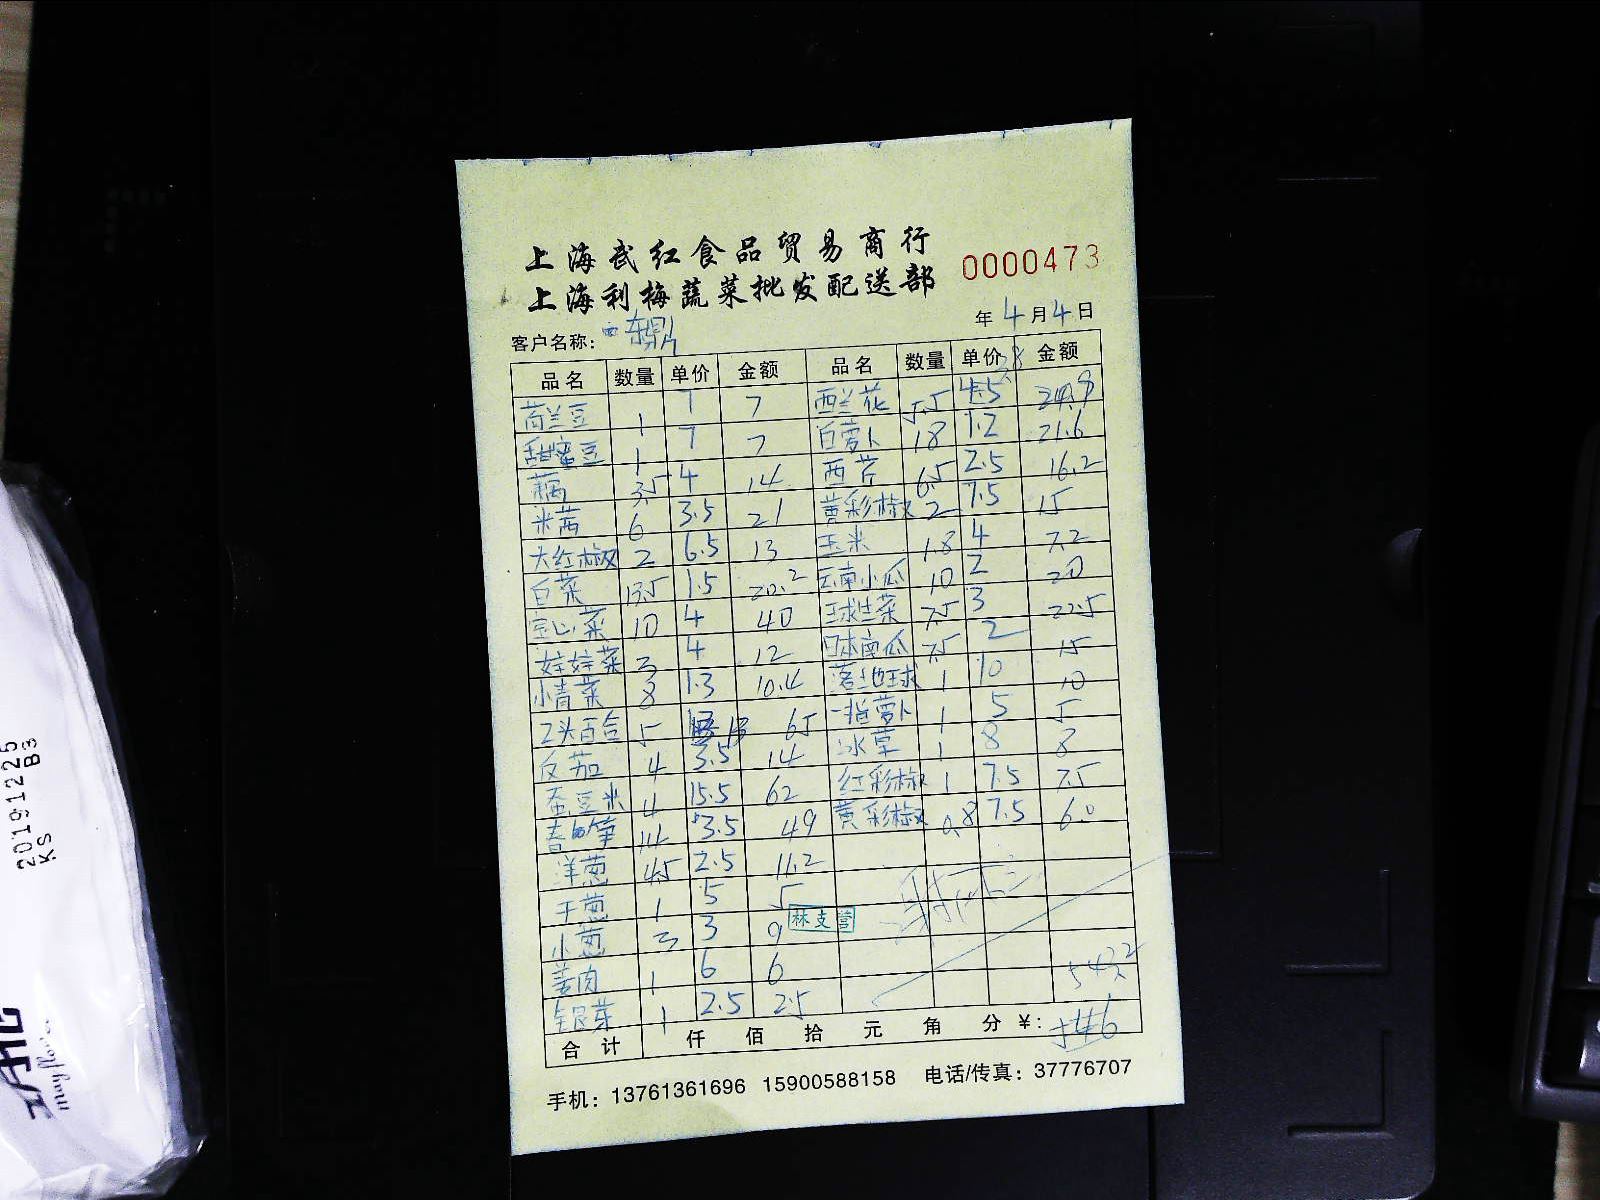 上海武红食品贸易商行
上海利梅蔬菜批发配送部
0000473
年 4 月 4 日
客户名称：
品名 数量 单价 金额 品名 数量 单价 金额
荷兰豆 1 7 7 西兰花 5.5 4.5 3.8
甜蜜豆 1 7 7 白萝卜 18 1.2 21.6
藕 3.5 4 14 西芹 6.5 2.5 16.2
米苋 6 3.5 21 黄彩椒 2 7.5 15
大红椒 2 6.5 13 玉米 1.8 4 7.2
白菜 13.5 1.5 20.2 云南小瓜 10 2 20
宝山菜 10 4 40 球生菜 7.5 3 22.5
娃娃菜 3 4 12 日本南瓜 7.5 2 15
小青菜 8 1.3 10.4 落地球 1 10 10
2头百合 5 13 65 一指萝卜 1 5 5
反茄 4 3.5 14 冰草 1 8 8
蚕豆米 4 15.5 62 红彩椒 1 7.5 7.5
14 3.5 49 黄彩椒 0.8 7.5 6.0
洋葱 4.5 2.5 11.2
干葱 1 5 5
小葱 3 3 9
林支营
姜肉 1 6 6
银芽 1 2.5 2.5
543.2
合计 仟 佰 拾 元 角 分 ￥：
手机：13761361696 15900588158 电话/传真：37776707
20191225
KS B3